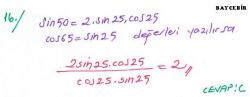 BAYCEBİR
16./ sin50 = 2.sin25.cos25
cos65 = sin25 değerleri yazılırsa
2sin25.cos25 / cos25.sin25 = 2 //
CEVAP: C